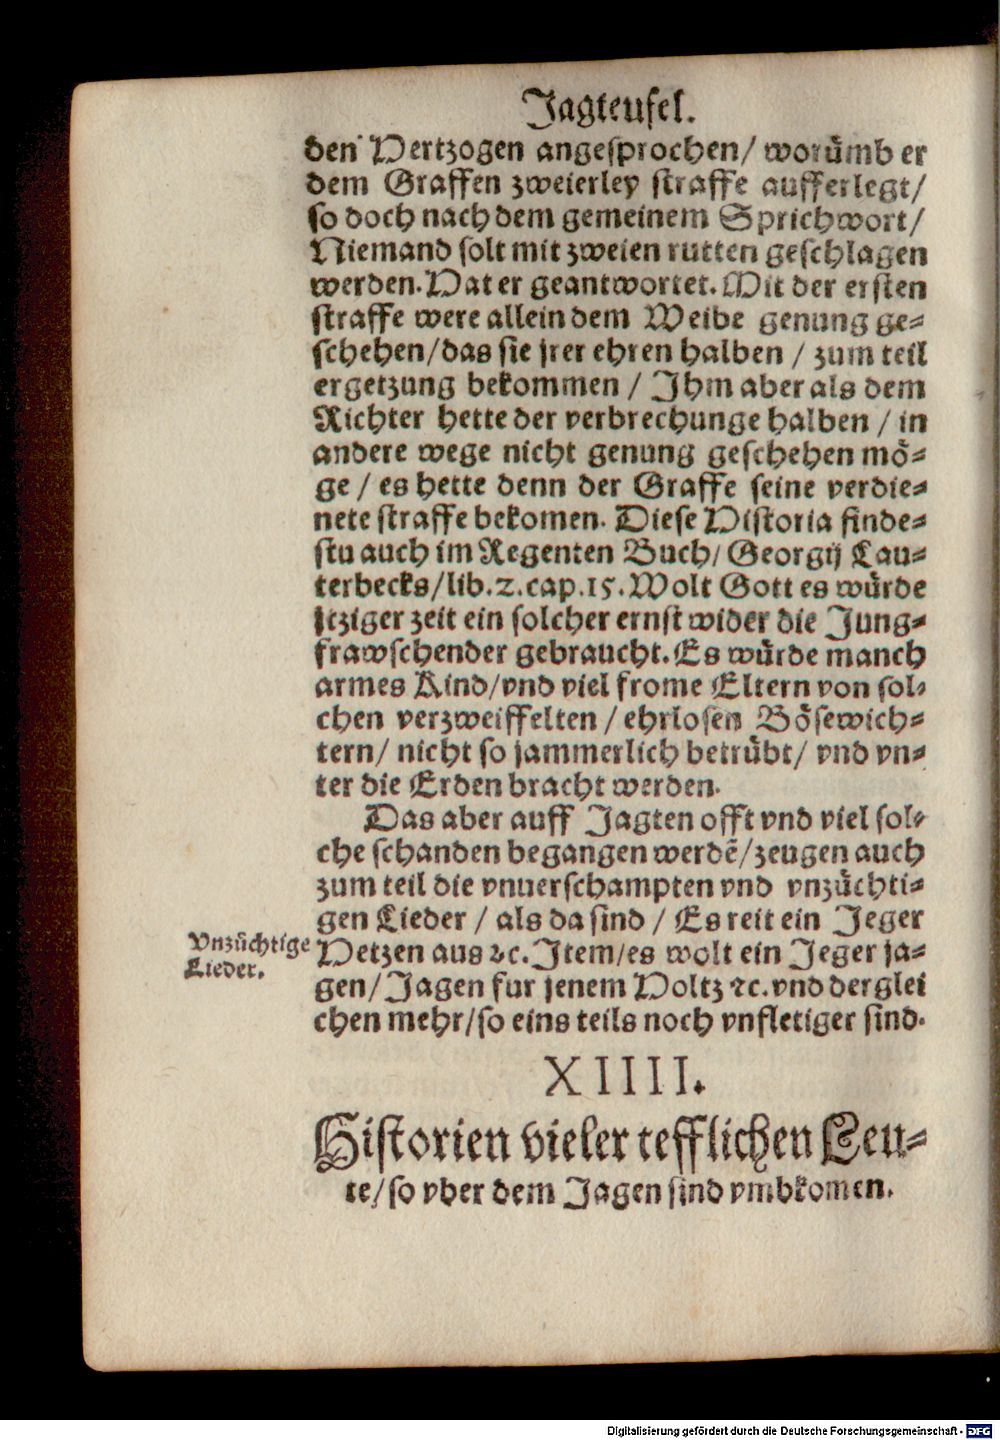 Jagteufel.
den Hertzogen angesprochen/ worümb er
dem Graffen zweierley straffe aufferlegt/
so doch nach dem gemeinem Sprichwort/
Niemand solt mit zweien rutten geschlagen
werden. Hat er geantwortet. Mit der ersten
straffe were allein dem Weibe genung ge-
schehen/das sie jrer ehren halben / zum teil
ergetzung bekommen / Jhm aber als dem
Richter hette der verbrechunge halben / in
andere wege nicht genung geschehen mö-
ge / es hette denn der Graffe seine verdie-
nete straffe bekomen. Diese Historia finde-
stu auch im Regenten Buch/ Georgij Lau-
terbecks/lib.2.cap.15. Wolt Gott es würde
jtziger zeit ein solcher ernst wider die Jung-
frawschender gebraucht. Es würde manch
armes Kind/vnd viel frome Eltern von sol-
chen verzweiffelten / ehrlosen Bösewich-
tern/ nicht so jammerlich betrübt/ vnd vn-
ter die Erden bracht werden.
Das aber auff Jagten offt vnd viel sol-
che schanden begangen werdē/zeugen auch
zum teil die vnuerschampten vnd vnzüchti-
gen Lieder / als da sind / Es reit ein Jeger
Vnzüchtige
Lieder.
Hetzen aus ꝛc. Jtem/es wolt ein Jeger ja-
gen/Jagen fur jenem Holtz ꝛc. vnd derglei
chen mehr/so eins teils noch vnfletiger sind.
XIIII.
Historien vieler tefflichen Leu-
te/so vber dem Jagen sind vmbkomen.
Digitalisierung gefördert durch die Deutsche Forschungsgemeinschaft - DFG